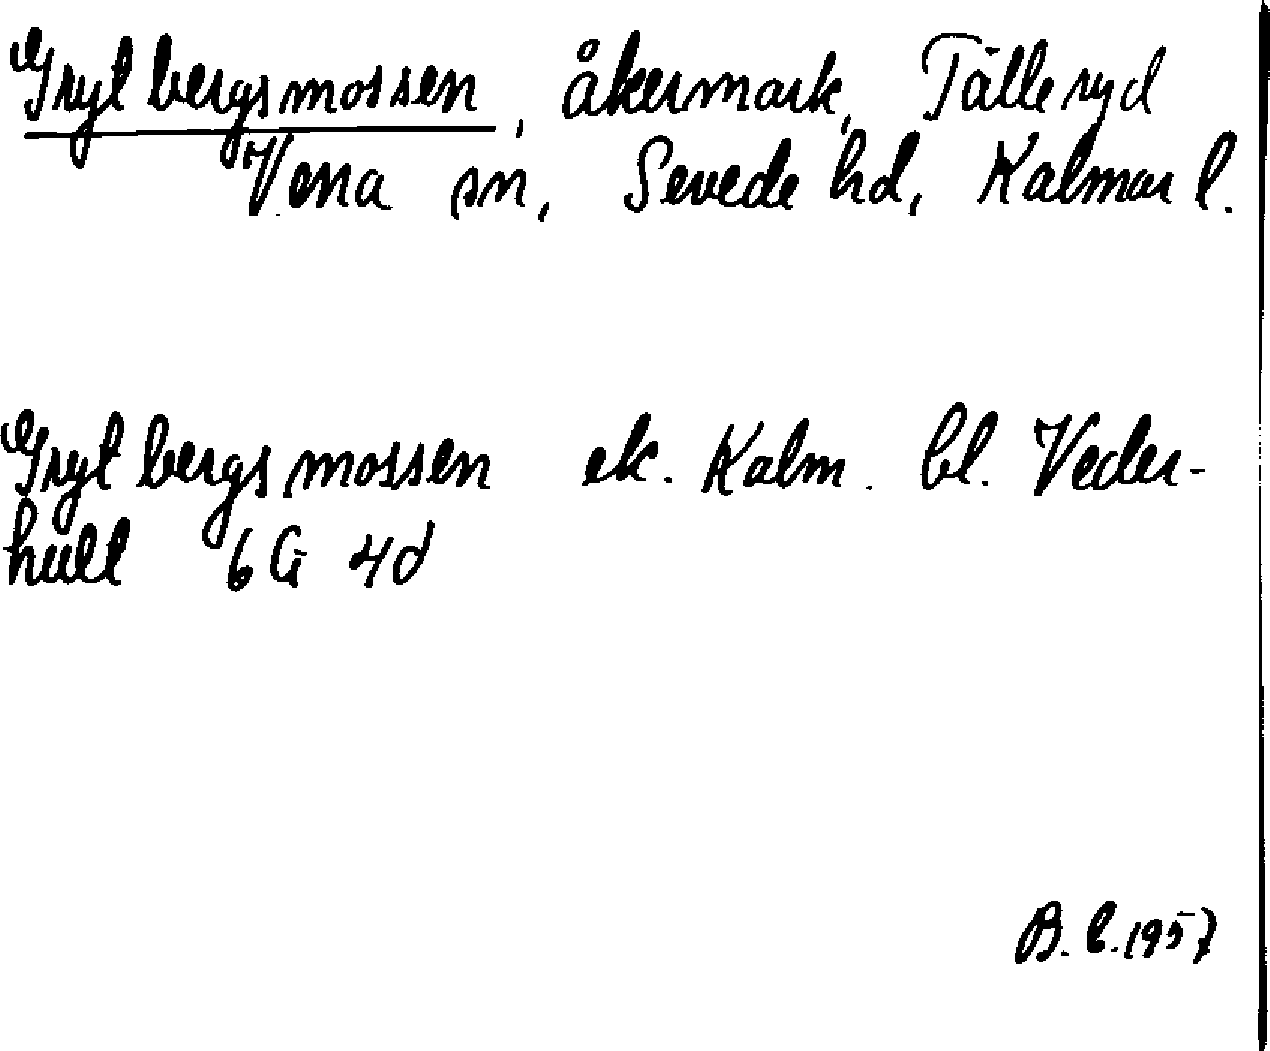 Grytbergsmossen, åkermark, Tälleryd
Vena sn, Sevede hd, Kalmar l.
Grytbergsmossen ek. Kalm. bl. Veder-
hult 6G 4d
B. L. 1957